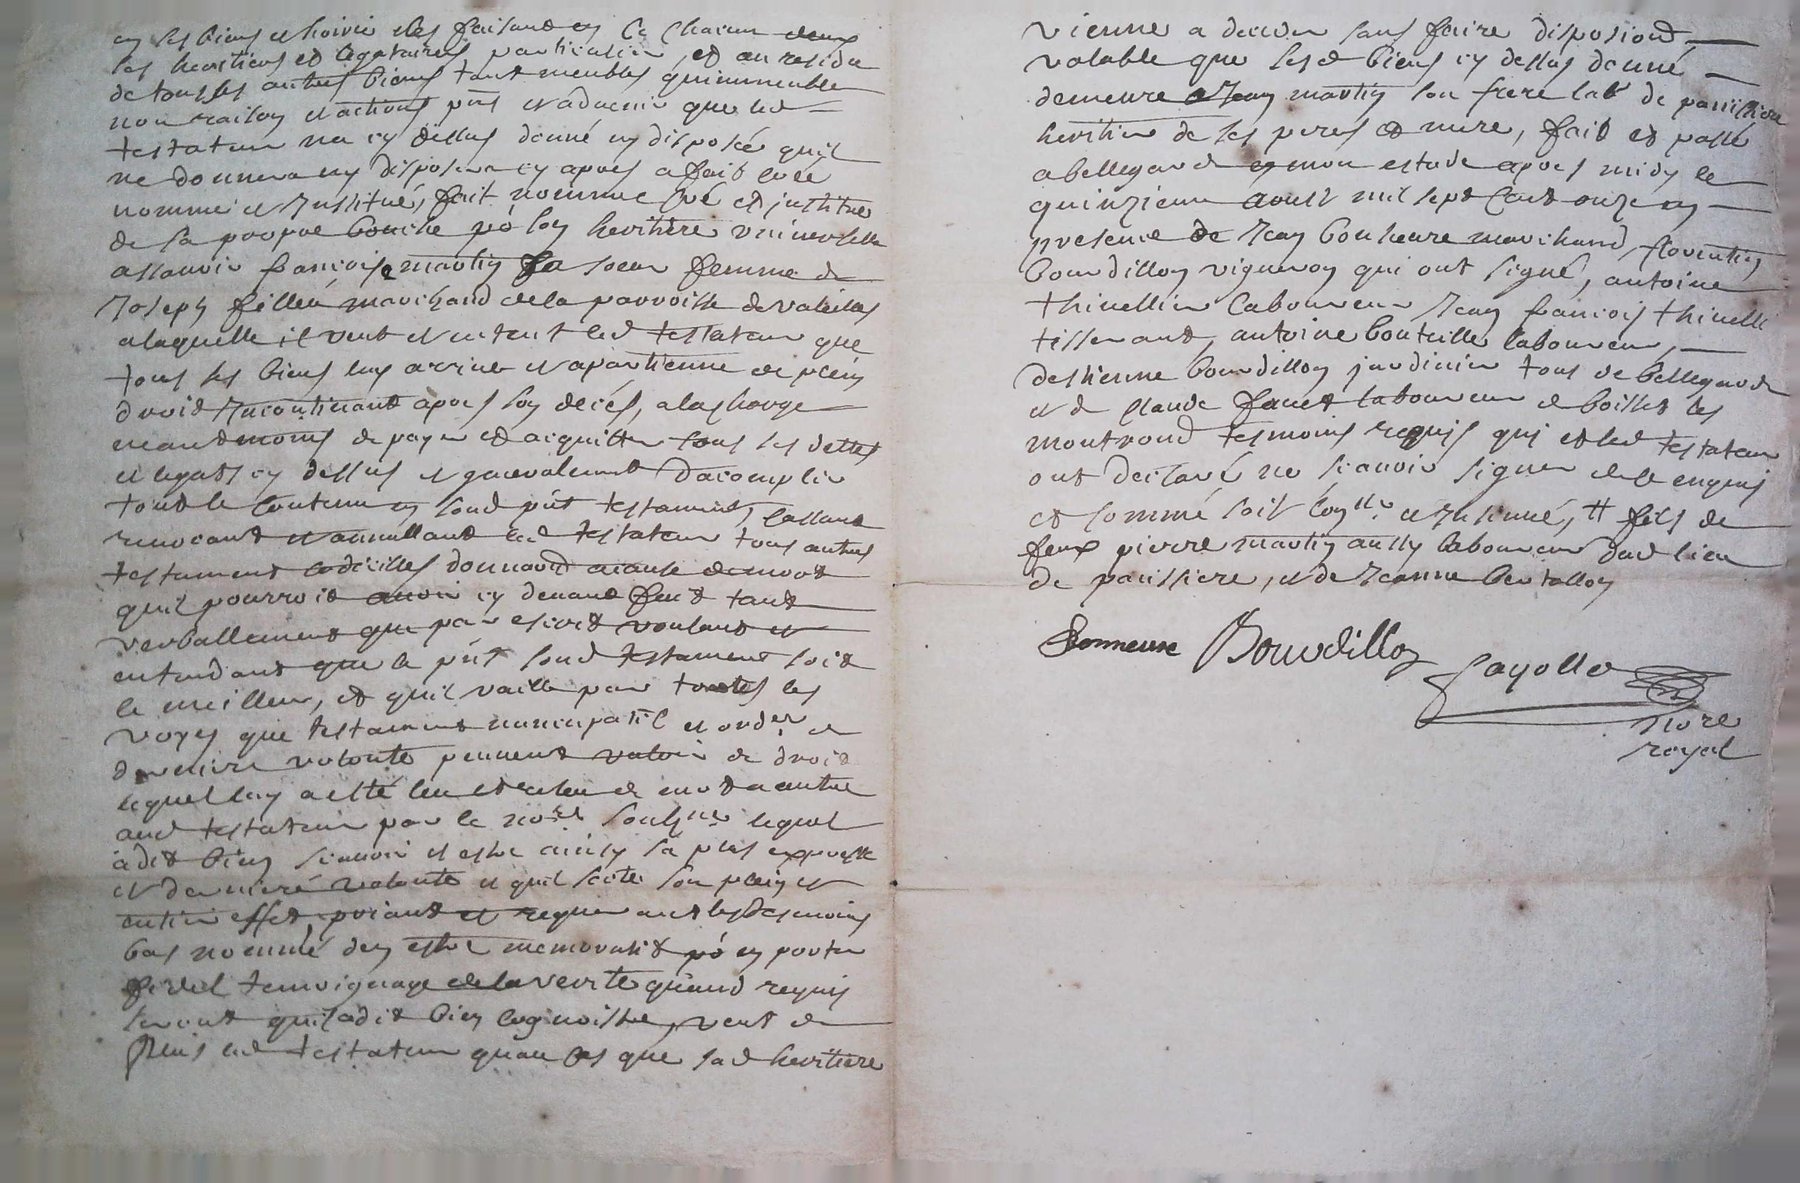 en ses biens et hoirie les faisant en ce chacun deux
ses heritiers et legataires particuliers, et au residu
de tous ses autres biens tant meubles quimmeubles
nom raison et actions pnts et aduenir que led
testateur na cy dessus donné ny disposé quil
ne donnera ny disposera cy apres a fait créé
nommé et Institué, fait nomme créé et institue
de sa propre bouche po son heritiere universelle
assauoir francoise martin sa soeur femme de
Joseph fillieu marchand de la parroisse de valeilles
a laquelle il veut et entent led testateur que
tous ses biens luy arriue et apartienne de plein
droit Incontinant apres son deces, a la charge
neantmoins de payer et acquitter tous ses dettes
et legats cy dessus et generalement dacomplir
tout le contenu en sond pnt testament, cassant
reuocant et annullant led testateur tous autres
testament codicilles donnaon a cause de mort
quil pourroit auoir cy deuant fait tant
verballement que par escrit voulant et
entendant que le pnt sond testament soit
le meilleur, et quil vaille par toutes les
voyes que testament nuncupatif et ordre de
derniere volonté peuuent valoir de droit
lequel luy a esté leu et releu de mot a autre
aud testateur par le nore soubsne lequel
a dit bien scauoir et estre ainsy sa pnt expresse
et derniere volonté et quil sorte son plein et
entier effet, priant et requerant les tesmoins
bas nommé den estre memoratif po en porter
fidel temoignage de la verite quand requis
seront quil a dit bien cognoistre, veut de
plus led testateur quau cas que sad heritiere
vienne a deceder sans faire disposion
valable que sesd biens cy dessus donné
demeure a Jean martin son frere labr de panissiere
heritier de ses peres et mere, fait et passé
a bellegarde en mon estude apres midy le
quinzieme aoust mil sept cent onze en
presence de Jean bonheure marchand, florentin
bourdillon vigneron qui ont signé, antoine
thiuellier laboureur Jean francois thiuelli
tissenant, antoine bouteille laboureur,
destienne bourdillon jardinier tous de bellegarde
et de claude fauet laboureur de boisset les
montrond tesmoins requis qui et led testateur
ont declaré ne scauoir signer de ce enquis
et sommé soit conlle et Insinué, # fils de
feux pierre martin aussy laboureur dud lieu
de panissiere, et de Jeanne bertollon
Bonneure Bourdillon
fayolle
nore
royal